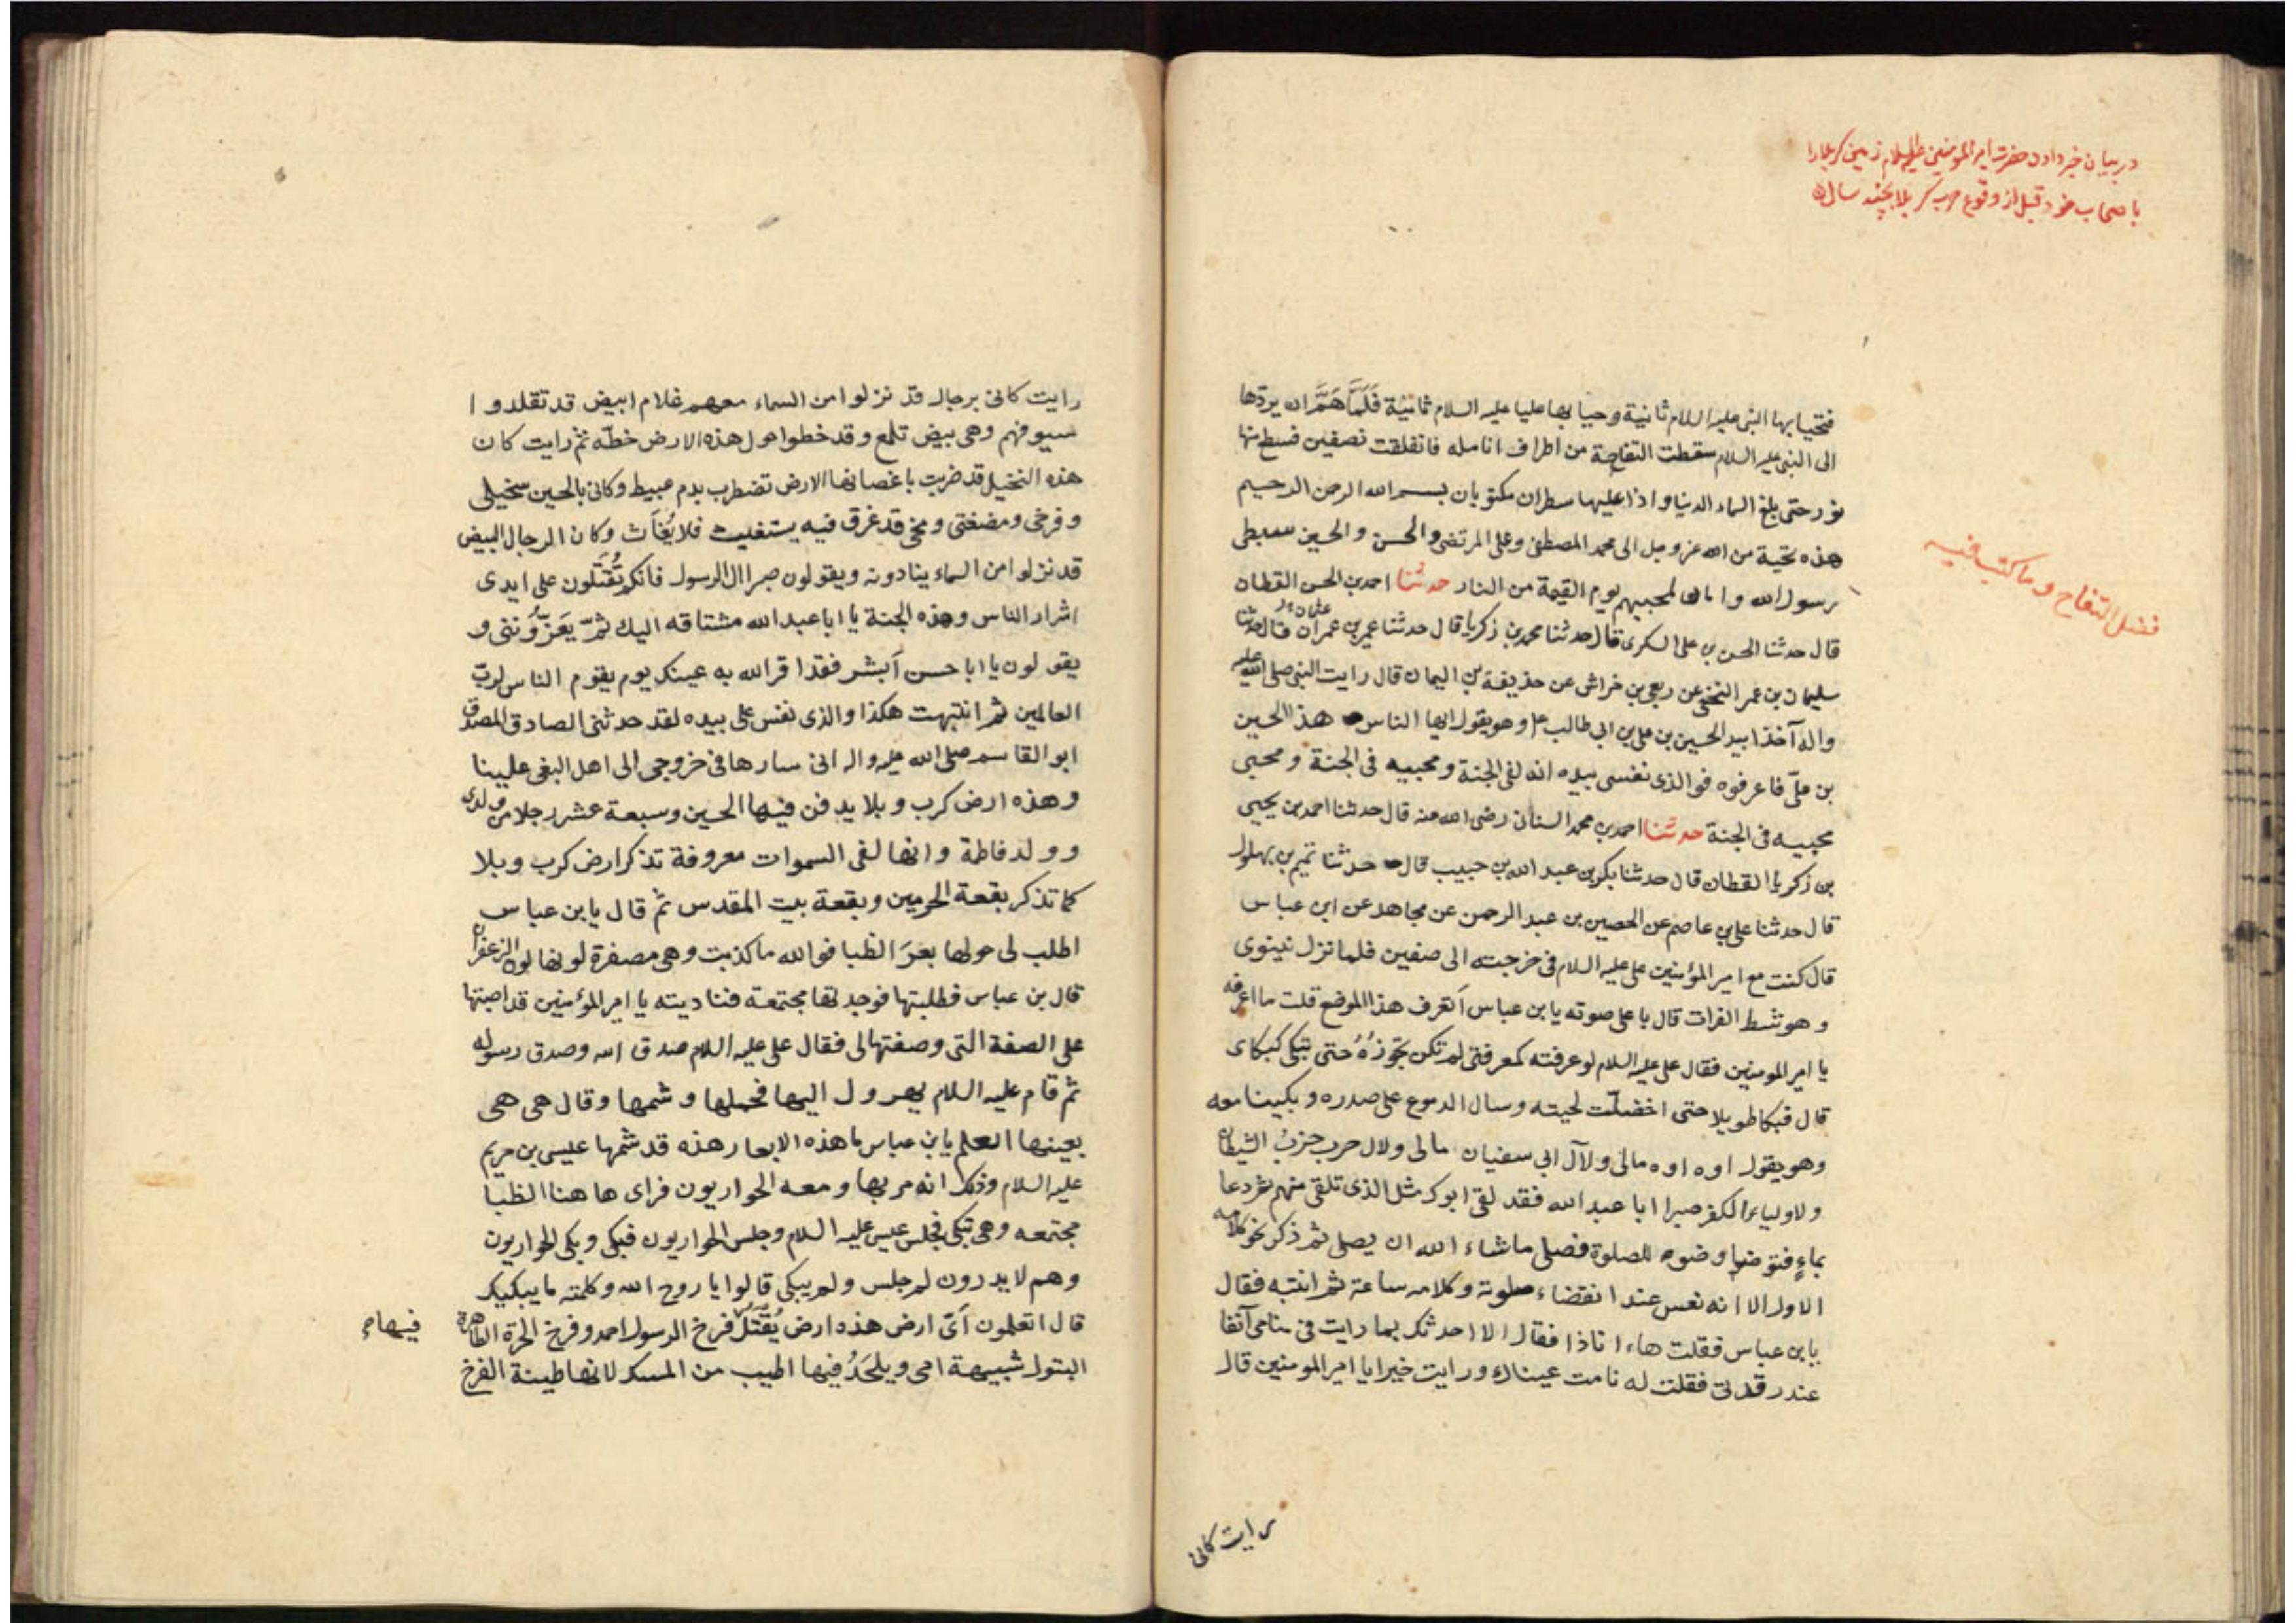 در بیان خبر دادن حضرت امیر المومنین علیه السلام زمین کربلا را
باصحاب خود قبل از وقوع حرب کربلا بچند سال
فتحيا بها النبى عليه السلام ثانية وحيا بها عليا عليه السلام ثانية فَلَمَّا هَمَّ ان يردّها
الى النبى عليه السلام سقطت التفاحة من اطراف انامله فانفلقت نصفين فسطع منها
نور حتى بلغ السماء الدنيا واذا عليها سطران مكتوبان بسم الله الرحمن الرحيم
هذه تحية من الله عز وجل الى محمد المصطفى وعلى المرتضى والحسن والحسين سبطى
رسول الله وامان لمحبيهم يوم القيمة من النار حدثنا احمد بن الحسن القطان
فضل التفاح وما كتب فيه
قال حدثنا الحسن بن على السكرى قال حدثنا محمد بن زكريا قال حدثنا عمير بن عمران قال حدثنا
سليمان بن عمر النخعى عن ربعى بن خراش عن حذيفة بن اليمان قال رايت النبى صلى الله عليه
واله آخذا بيد الحسين بن على بن ابى طالب ع وهو يقول ايها الناس هذا الحسين
بن علىّ فاعرفوه فوالذى نفسى بيده انه لفى الجنة ومحبيه فى الجنة ومحبى
محبيه فى الجنة حدثنا احمد بن محمد السنانى رضى الله عنه قال حدثنا احمد بن يحيى
بن زكريا القطان قال حدثنا بكر بن عبد الله بن حبيب قال حدثنا تميم بن بهلول
قال حدثنا على بن عاصم عن الحصين بن عبد الرحمن عن مجاهد عن ابن عباس
قال كنت مع امير المؤمنين على عليه السلام فى خرجته الى صفين فلما نزل نينوى
وهو شط الفرات قال باعلى صوته يا بن عباس اَتعرف هذا الموضع قلت ما اعرفه
يا امير المومنين فقال على عليه السلام لو عرفته كمعرفتى لم تكن تجوزُهُ حتى تبكى كبكائى
قال فبكا طويلا حتى اخضلّت لحيته وسال الدموع على صدره وبكينا معه
وهو يقول اوه اوه مالى ولآل ابى سفيان مالى ولال حرب حزبُ الشيطان
ولاولياء الكفر صبرا ابا عبد الله فقد لقى ابوك مثل الذى تلقى منهم ثم دعا
بماءٍ فتوضا وضوء للصلوة فصلى ما شاء الله ان يصلى ثم ذكر نحو كلامه
الاول الا انه نعس عند انقضاء صلوته وكلامه ساعة ثم انتبه فقال
يا بن عباس فقلت هاء انا ذا فقال الا احدثك بما رايت فى منامى آنفا
عند رقدتى فقلت له نامت عيناك ورايت خيرا يا امير المومنين قال
رايت كانى
رايت كانى برجال قد نزلوا من السماء معهم غلام ابيض قد تقلدوا
سيوفهم وهى بيض تلمع وقد خطوا حول هذه الارض خطّه ثم رايت كان
هذه النخيل قد ضربت باغصانها الارض تضطرب بدم عبيط وكانى بالحسين سخيلى
وفرخى ومضغتى ومخى قد غرق فيه يستغيث فلا يُغَاث وكان الرجال البيض
قد نزلوا من السماء ينادونه ويقولون صبرا ال الرسول فانكم تُقتَلون على ايدى
اشرار الناس وهذه الجنة يا ابا عبد الله مشتاقه اليك ثمّ يَعَزُّوننى و
يقولون يا ابا حسن اَبشر فقد اقر الله به عينك يوم يقوم الناس لربّ
العالمين ثم انتبهت هكذا والذى نفس على بيده لقد حدثنى الصادق المصدق
ابو القاسم صلى الله عليه واله انى سارها فى خروجى الى اهل البغى علينا
وهذه ارض كرب وبلا يدفن فيها الحسين وسبعة عشر رجلا من ولدى
وولد فاطمة وانها لفى السموات معروفة تذكر ارض كرب وبلا
كما تذكر بقعة الحرمين وبقعة بيت المقدس ثم قال يا بن عباس
اطلب لى حولها بعَرَ الظبا فوالله ما كذبت وهى مصفرة لونها لون الزعفران
قال بن عباس فطلبتها فوجدتها مجتمعة فناديته يا امير المؤمنين قد اصبتها
على الصفة التى وصفتها لى فقال على عليه السلام صدق الله وصدق رسوله
ثم قام عليه السلام يهرول اليها فحملها وشمها وقال هى هى
بعينها العلم يا بن عباس ما هذه الابعار هذه قد شمّها عيسى بن مريم
عليه السلام وذلك انه مر بها ومعه الحواريون فراى ها هنا الظبا
مجتمعه وهى تبكى فجلس عيسى عليه السلام وجلس الحواريون فبكى وبكى الحواريون
وهم لا يدرون لم جلس ولم يبكى قالوا يا روح الله وكلمته ما يبكيك
قال اتعلمون اَىّ ارض هذه ارض يُقتَلُ فرخ الرسول احمد وفرخ الحرّة الطاهرة
فيها
البتول شبيهة امى ويلحَدُ فيها اطيب من المسك لانها طينة الفرخ